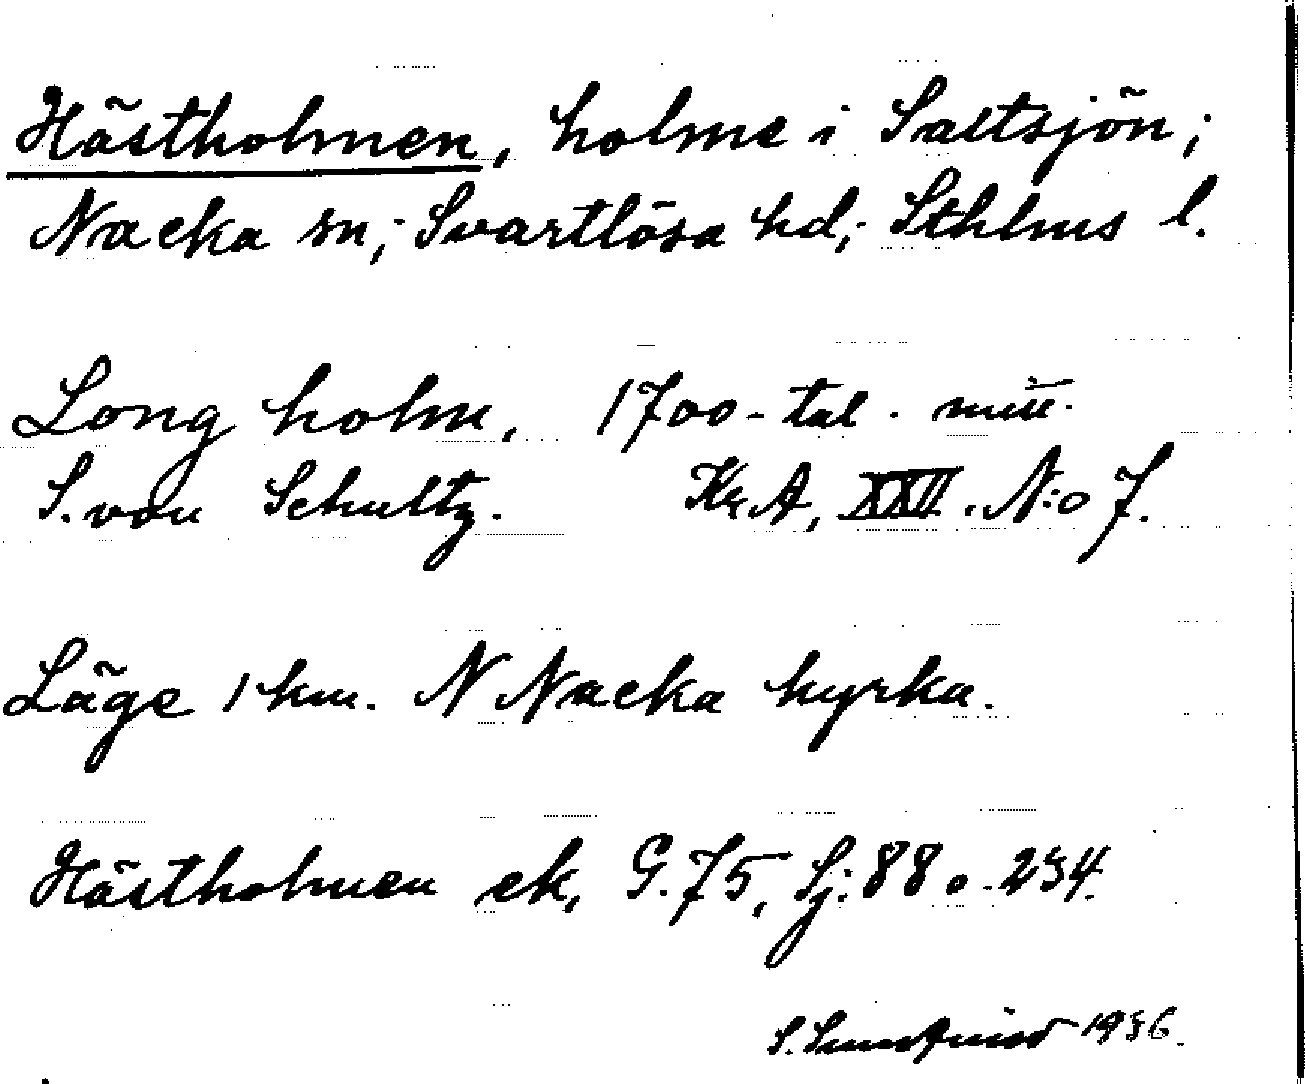 Hästholmen, holme i Saltsjön;
Nacka sn; Svartlösa hd; Sthlms l.
Longholm, 1700-tal.
S. von Schultz. Kr.A, XXV. N:o 7.
Läge 1 km. N Nacka kyrka.
Hästholmen ek, G. 75, Sj: 88 o. 234.
S. 1936.